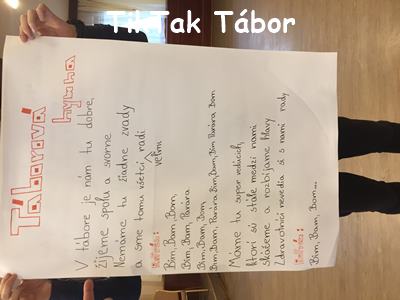 TikTak Tábor
Táborová
hymna
V tábore je nám tu dobre,
žijeme spolu a svorne
Nemáme tu žiadne zvady
a sme tomu všetci radi
veľmi
Bim, Bam, Bom,
Bim, Bam, Parára
Bim, Bam, Bom
Bim, Bam, Parára Bim, Bam, Bim Parára Bom
Máme tu super vedúcich,
ktorí sú stále medzi nami
skáčeme a rozbíjame hlavy
Zdravotníci nevedia si s nami rady
Bim, Bam, Bom...